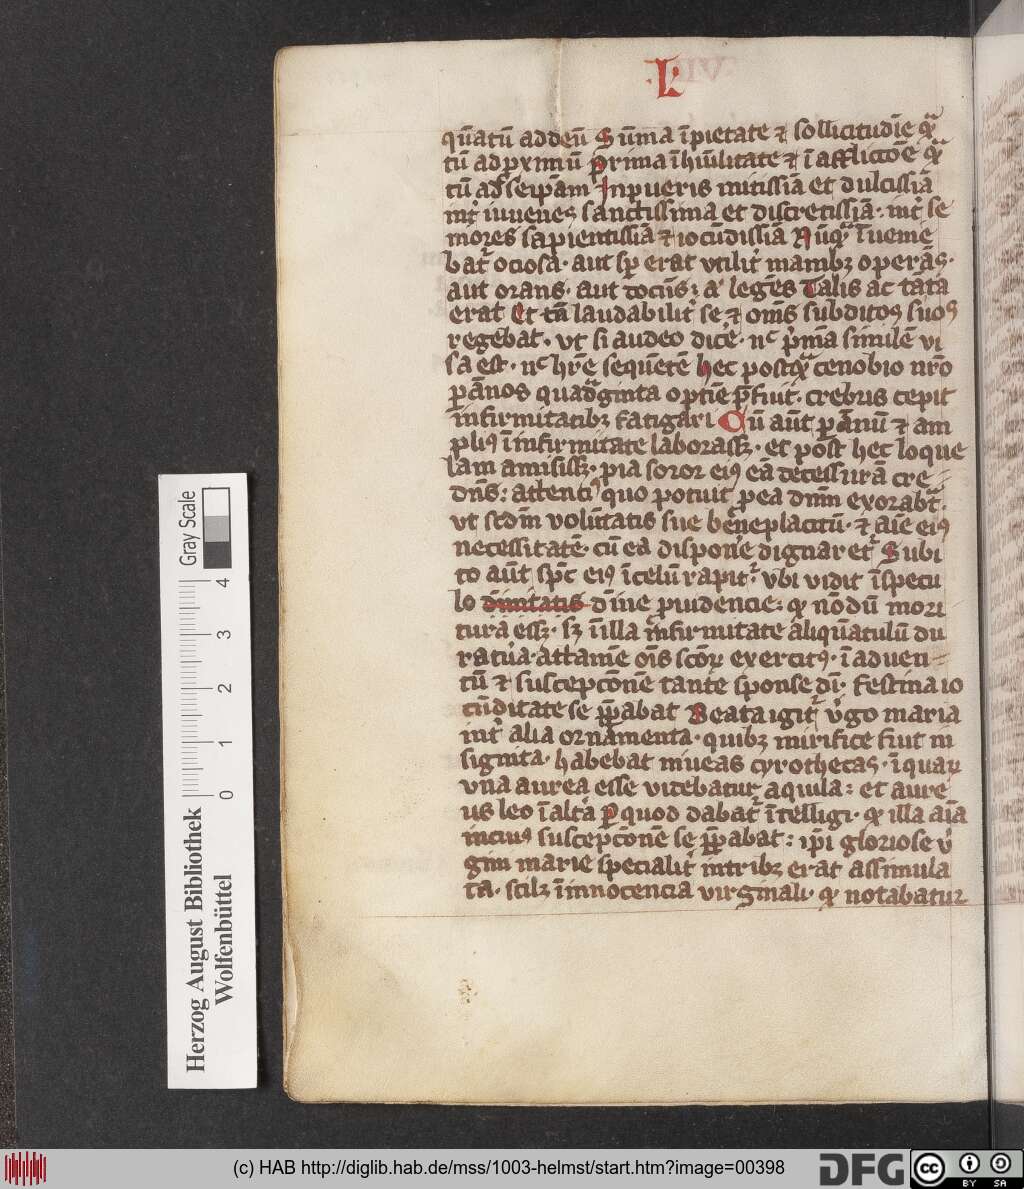 L
VII
qūatū ad deū Sūma īpietate ⁊ sollicitudīe qͣ
tū ad ꝓximū prima ī hūilitate ⁊ ī afflictōe qͣ
tū ad seipām In pueris mitissīa et dulcissīa
int᷑ iuuenes sanctissima et discretissīa· int᷑ se
niores sapientissīa ⁊ iocūdissīa Nūqͣ īuenie
bat᷑ ociosa· aut sp̄ erat vtilit᷑ manibꝫ operās·
aut orans· aut docēs: a᷑ legēs Talis ac tāta
erat Et tā laudabilit᷑ se ⁊ om̄s subditos suos
regebat· vt si audeo dicē· nͨ p̄mā similē vi
sa est· nͨ hr̄e sequētē hec postqͣ cenobio nr̄o
ꝑ ānos quadͣginta optīe p̄fuit· crebris cepit
infirmitatibꝫ fatigari Cū aūt ꝑ ānū ⁊ am
plīꝯ ī infirmitate laborassꝫ· et post hec loque
lam amisissꝫ· pia soror eiꝯ eā decessurā cre
dēs: attentiꝯ quo potuit ꝓ ea dnm̄ exorabat᷑·
vt scdm̄ volūtatis sue bn̄eplacitū· ⁊ aīe eiꝯ
necessitatē· cū ea dispone᷑ dignaret᷑ Subi
to aūt sp̄c eiꝯ ī celū rapit᷑· vbi vidit ī specu
lo diuinitatis diuīe ꝓuidencie: qͥ nōdū mori
tura essꝫ· sꝫ ī illa infirmitate aliquātulū du
ratura· attamē om̄s scōꝝ exercitꝯ· ī aduen
tū ⁊ suscepcōnē tante sponse dī· festina io
cūditate se p̄pabat Beata igit᷑ v̓go maria
int᷑ alia ornamenta· quibꝫ mirifice fuit in
signita· habebat niueas cyrothecas· ī quaꝝ
vna aurea esse videbatur᷑ aquila: et aure
us leo ī altā ꝑ quod dabat᷑ ītelligi· qͥ illa aīa
in ciuꝯ suscepcōnē se p̄pabat: ip̄i gloriose v̓
gini marie specialit᷑ in tribꝫ erat assimula
ta· scilꝫ ī innocencia virginali· qͥ notabatur
Gray Scale
0 1 2 3 4
Herzog August Bibliothek
Wolfenbüttel
(c) HAB http://diglib.hab.de/mss/1003-helmst/start.htm?image=00398
DFG
cc BY SA